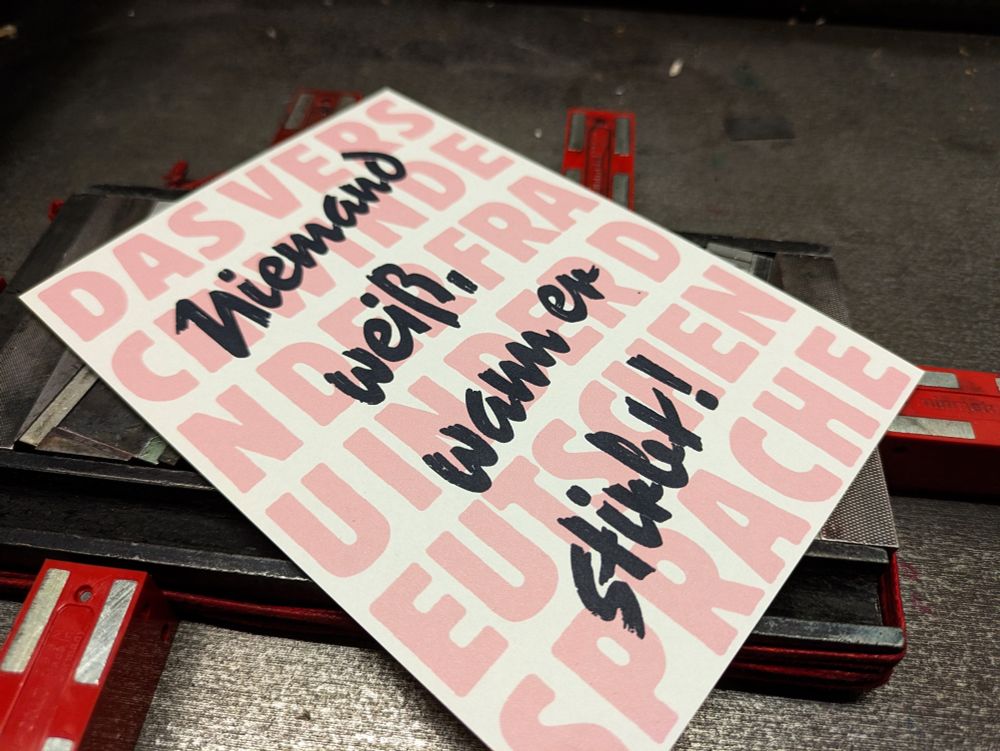 DAS VERS
CHWINDE
N DER FRA
U IN DER D
EUTSCHEN
SPRACHE
Niemand
weiß,
wann er
stirbt!